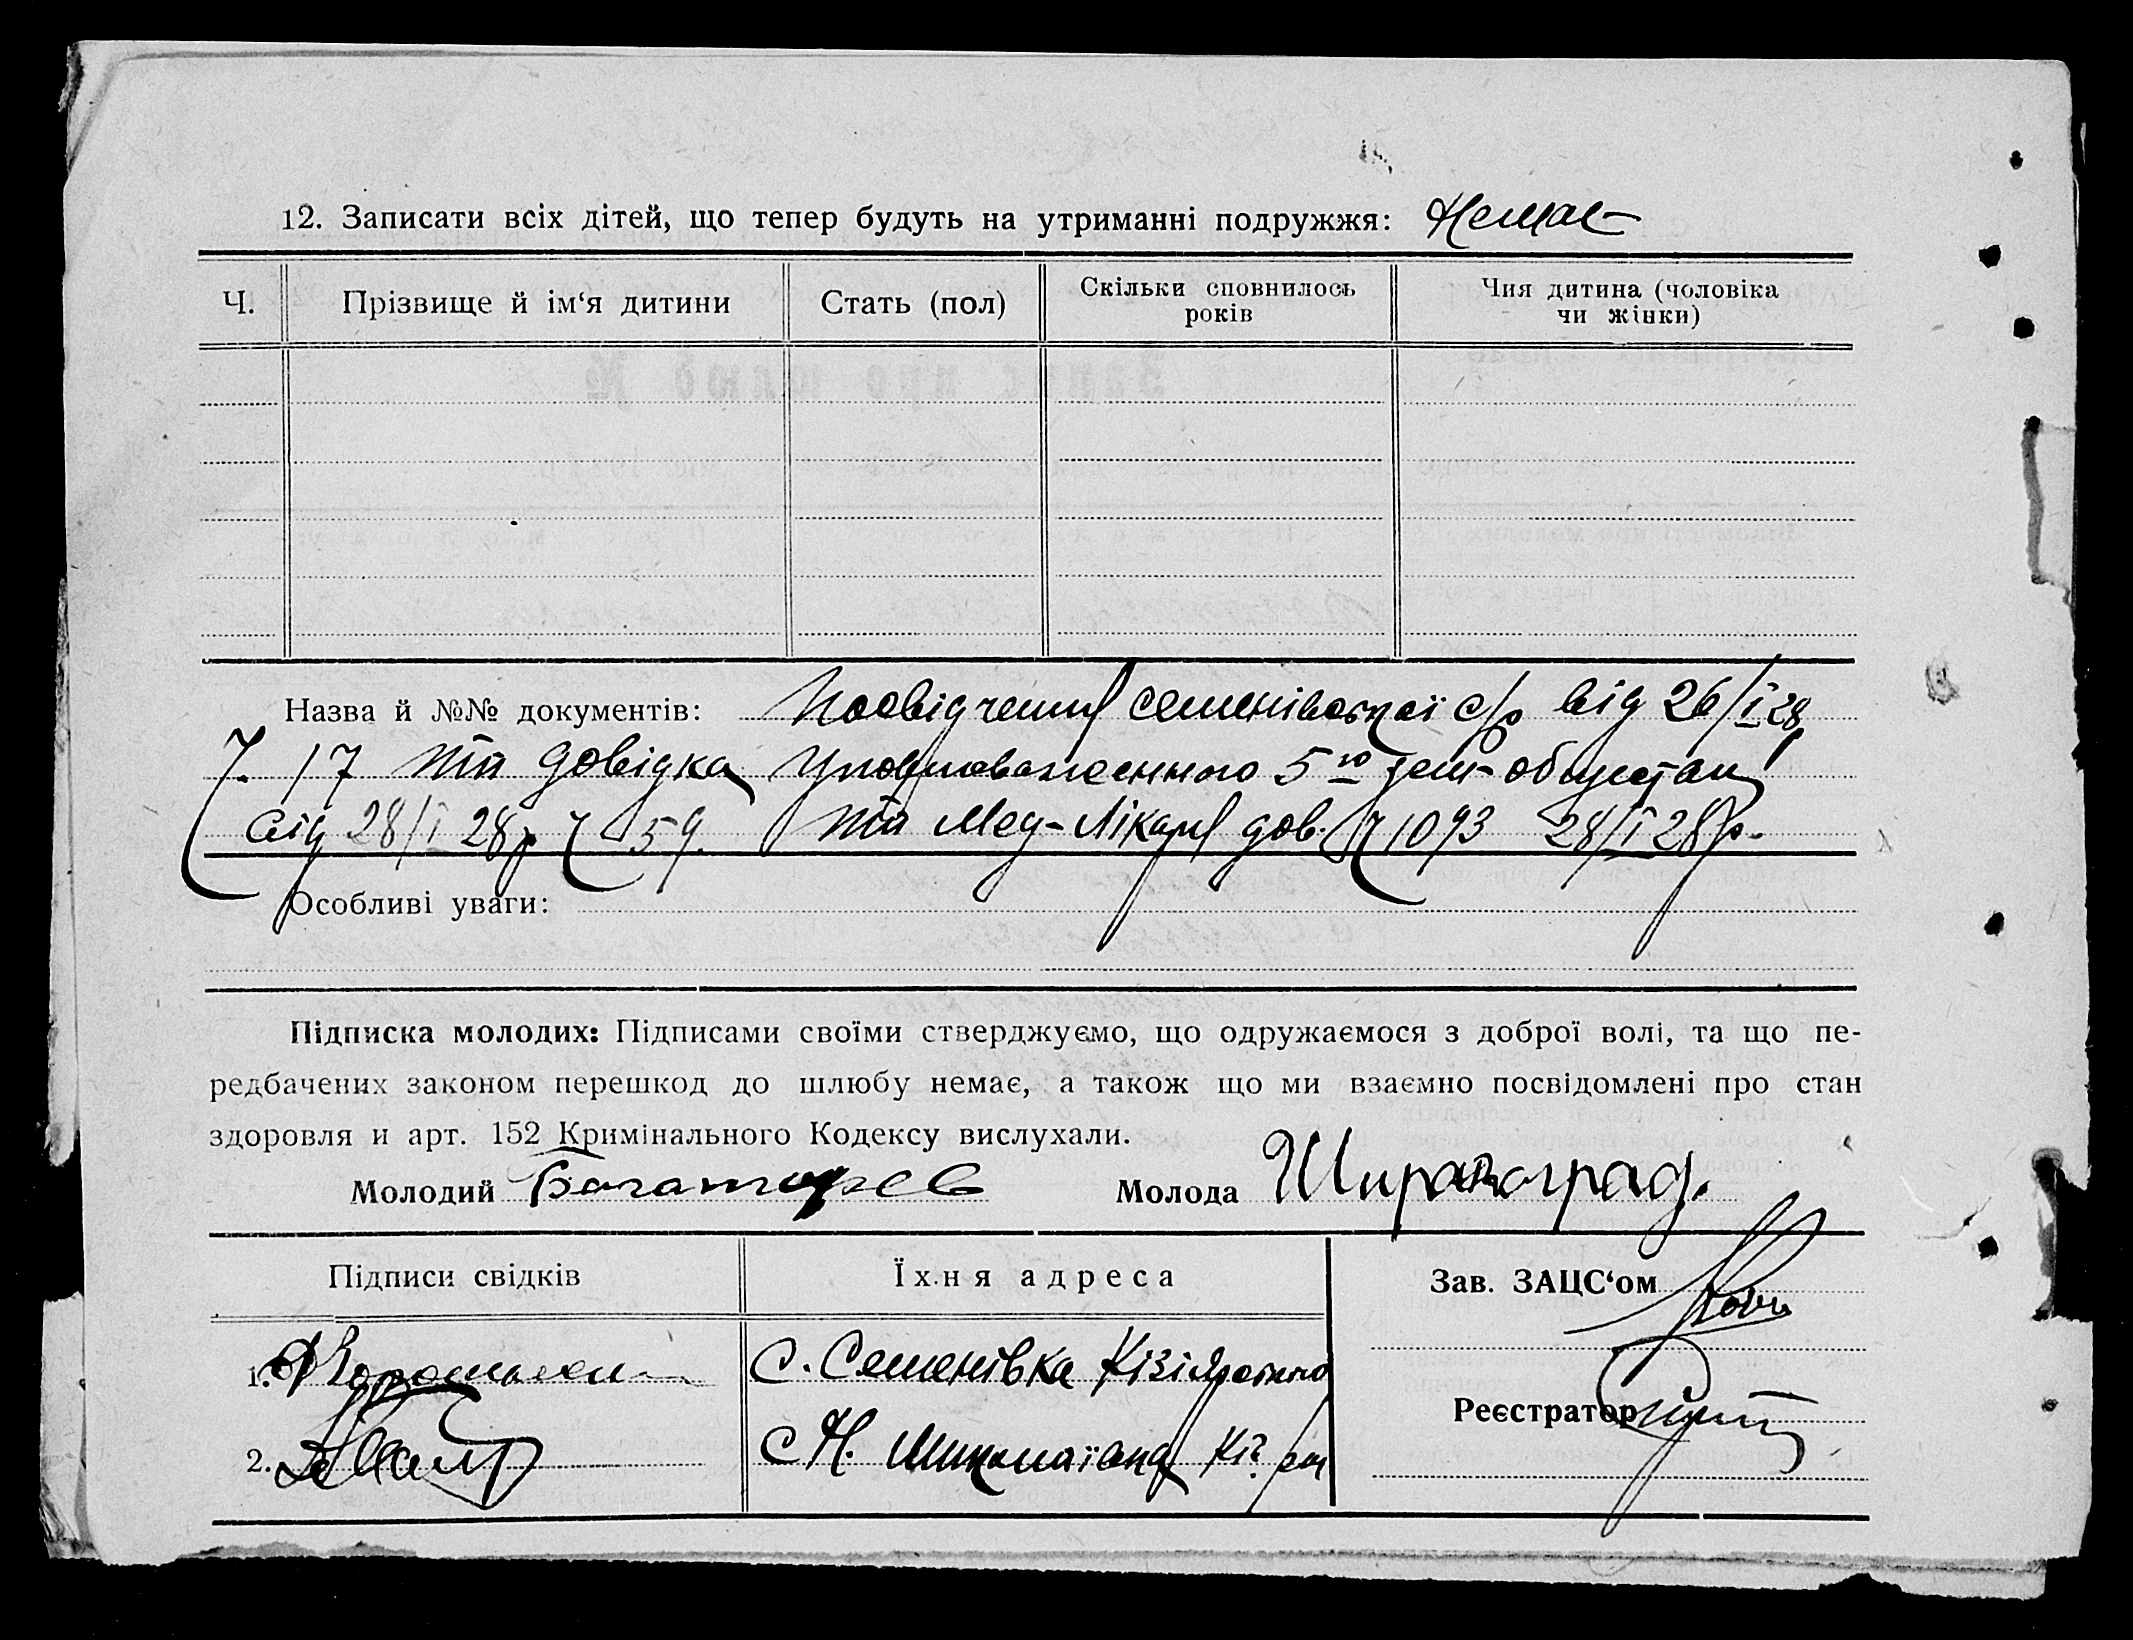 12. Записати всіх дітей, що тепер будуть на утриманні подружжя: Немає
Ч. Прізвище й ім‘я дитини Стать (пол) Скільки сповнилось років Чия дитина (чоловіка чи жінки)
Назва й №№ документів: Посвідчення Семенівської с/р від 26/I 28
Ч. 17 та довідка Уповноваженного 5го
від 28/I 28р Ч 59. та Мед-Лікаря дов. Ч 1093 28/I 28р.
Особливі уваги:
Підписка молодих: Підписами своїми стверджуємо, що одружаємося з доброї волі, та що пе-
редбачених законом перешкод до шлюбу немає, а також що ми взаємно посвідомлені про стан
здоровля и арт. 152 Кримінального Кодексу вислухали.
Молодий Богатирев Молода
Підписи свідків Їхня адреса Зав. ЗАЦС‘ом
1. С. Семенівка
Реєстратор
2. С Н.